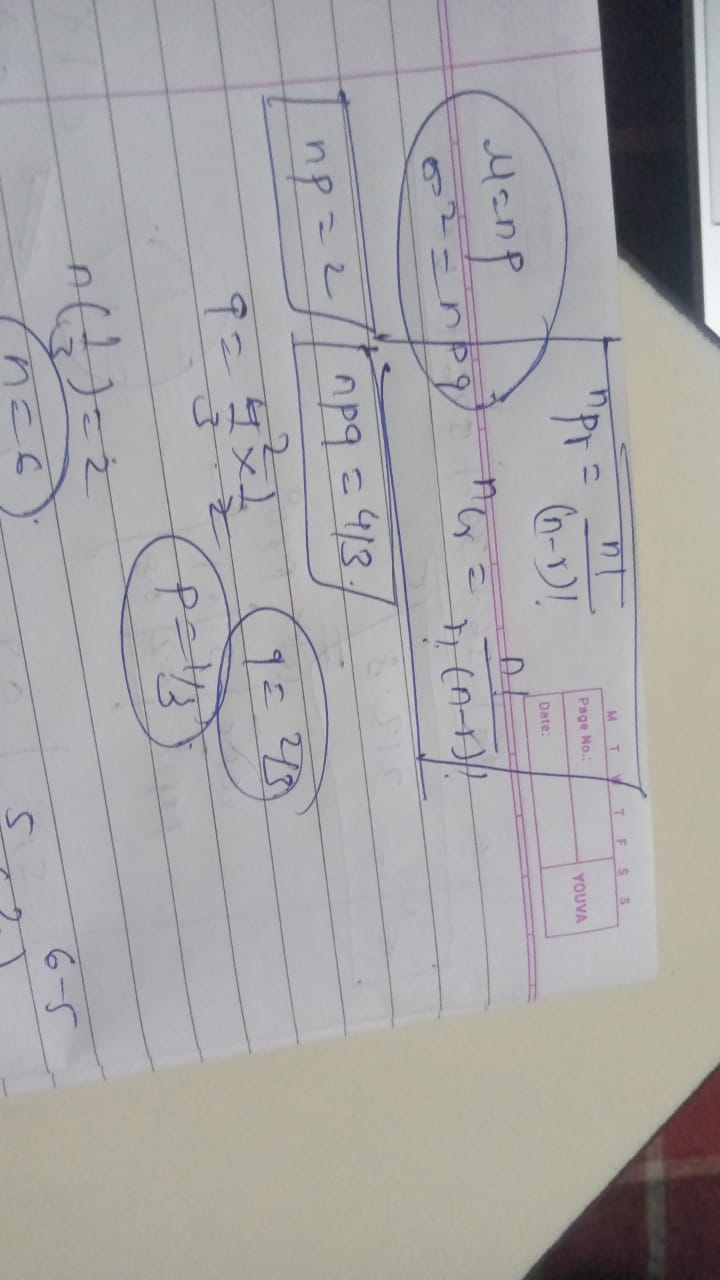 M T W T F S S
Page No.:
Date:
YOUVA
μ=np
σ² = npq
nPr = n!/(n-r)!
nCr = n!/r!(n-r)!
np = 2
npq = 4/3.
q = 4/3 × 1/2
q = 2/3
p = 1/3
n(1/3) = 2
n = 6.
6-5